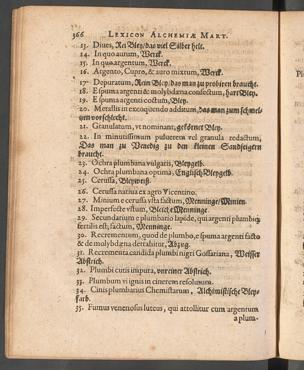 366 LEXICON ALCHEMIÆ MART.
13. Diues, Rei Bley/das viel Silber helt.
14. In quo aurum, Werck.
15. In quo argentum, Werck.
16. Argento, Cupro, & auro mixtum, Werck.
17. Depuratum, Rein Bley/das man zu probiren braucht.
18. E spuma argenti & molybdæna confectum, hart Bley.
19. E spuma argenti coctum, Bley.
20. Metallis in excoquendo additum, das man zum schmel-
tzen vorschlecht.
21. Granulatum, vt nominant, gekörnet Bley.
22. In minutissimum puluerem vel granula redactum,
Das man zu Venedig zu den kleinen Sandzeigern
braucht.
23. Ochra plumbana vulgaris, Bleygelb.
24. Ochra plumbana optima, Englisch Bleygelb.
25. Cerussa, Bleyweiß.
26. Cerussa natiua ex agro Vicentino.
27. Minium e cerussa vsta factum, Menninge/Minien.
28. Imperfecte vstum, Bleiche Menninge.
29. Secundarium e plumbario lapide, qui argenti plumbiq;
fertilis est, factum, Menninge.
30. Recrementum, quod de plumbo, e spuma argenti facto
& de molybdæna detrahitur, Abzug.
31. Recrementa candida plumbi nigri Goslariana, Weisser
Abstrich.
32. Plumbi cutis impura, vnreiner Abstrich.
33. Plumbum vi ignis in cinerem resolutum.
34. Cinis plumbarius Chemistarum, Alchimistische Bley-
farb.
35. Fumus venenosus luteus, qui attollitur cum argentum
a plum-